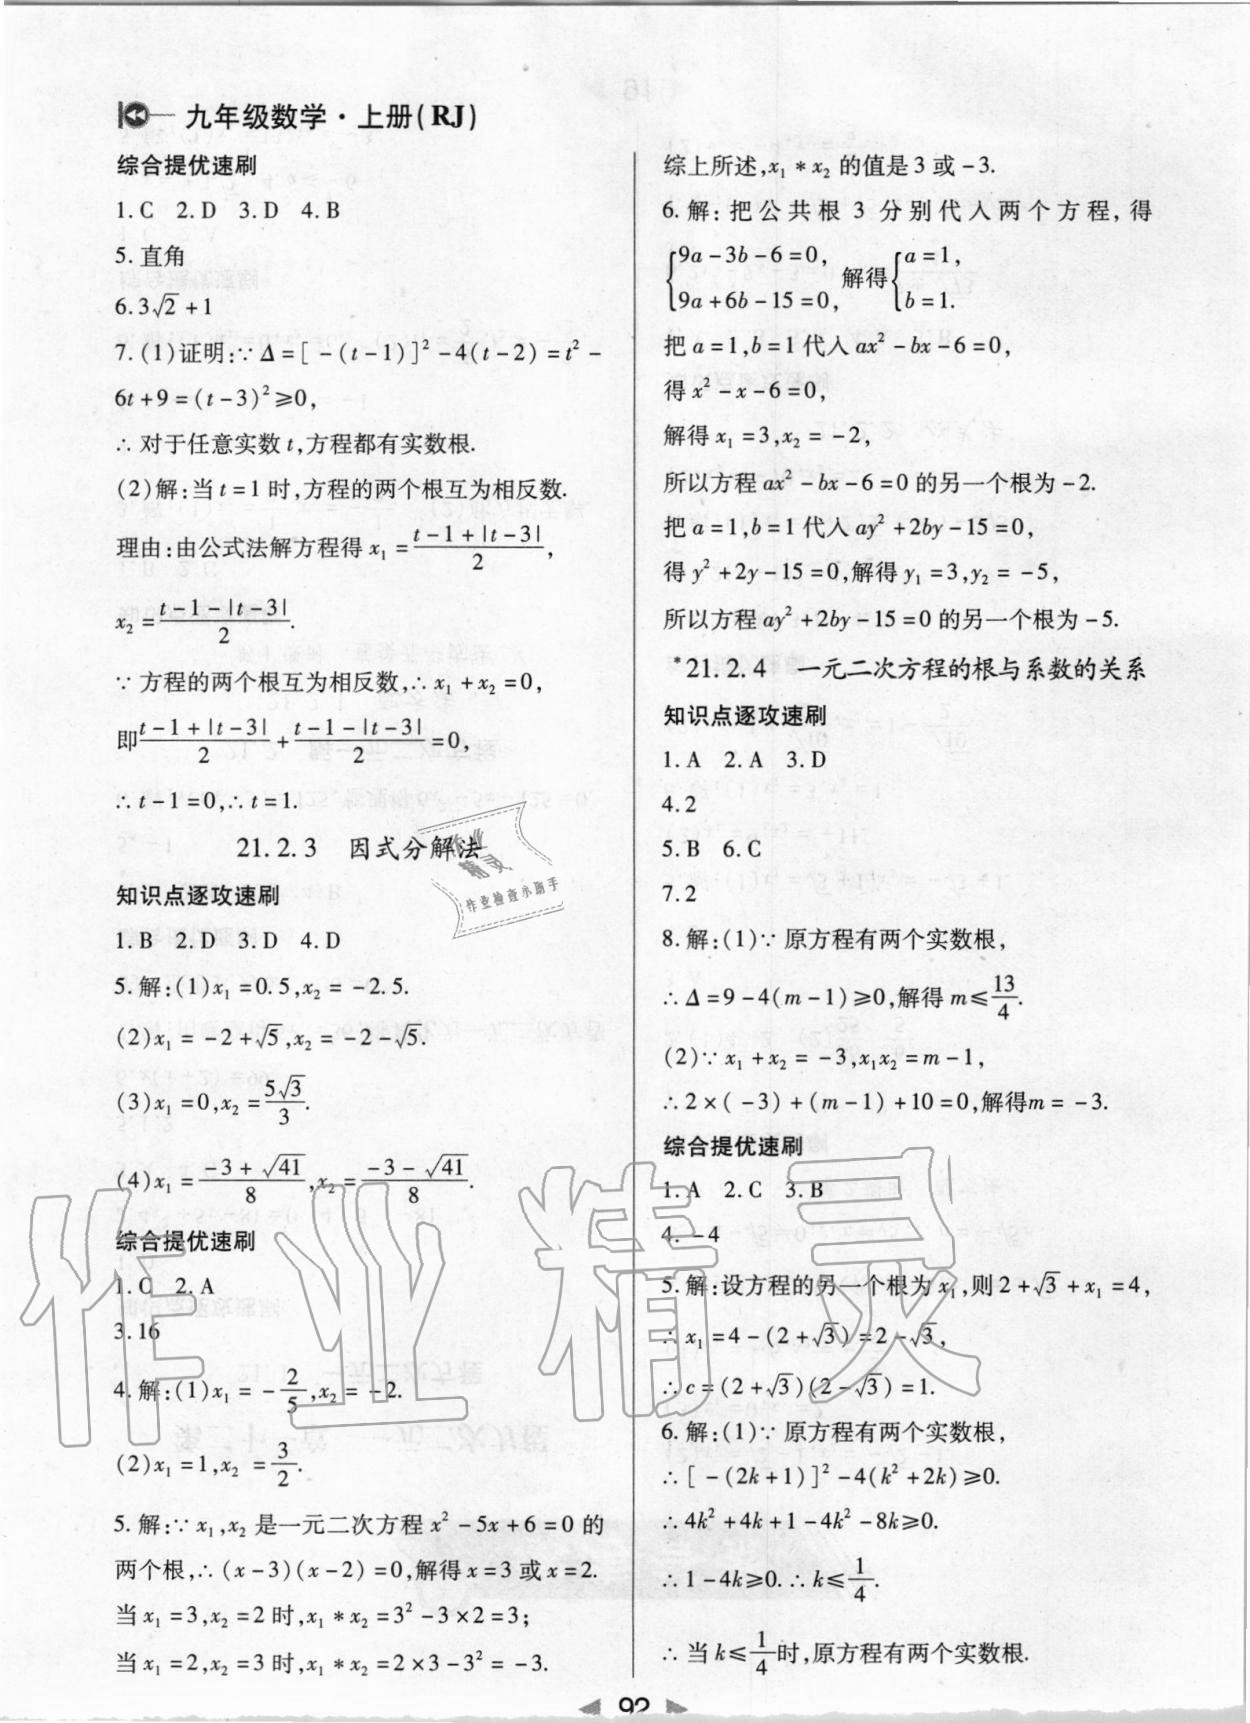 九年级数学·上册(RJ)
综合提优速刷
1.C 2.D 3.D 4.B
5.直角
6.3√2+1
7.(1)证明:∵Δ=[-(t-1)]²-4(t-2)=t²-
6t+9=(t-3)²≥0,
∴对于任意实数t,方程都有实数根.
(2)解:当t=1时,方程的两个根互为相反数.
理由:由公式法解方程得x₁=(t-1+|t-3|)/2,
x₂=(t-1-|t-3|)/2.
∵方程的两个根互为相反数,∴x₁+x₂=0,
即(t-1+|t-3|)/2+(t-1-|t-3|)/2=0,
∴t-1=0,∴t=1.
21.2.3 因式分解法
知识点逐攻速刷
1.B 2.D 3.D 4.D
5.解:(1)x₁=0.5,x₂=-2.5.
(2)x₁=-2+√5,x₂=-2-√5.
(3)x₁=0,x₂=5√3/3.
(4)x₁=(-3+√41)/8,x₂=(-3-√41)/8.
综合提优速刷
1.C 2.A
3.16
4.解:(1)x₁=-2/5,x₂=-2.
(2)x₁=1,x₂=3/2.
5.解:∵x₁,x₂是一元二次方程x²-5x+6=0的
两个根,∴(x-3)(x-2)=0,解得x=3或x=2.
当x₁=3,x₂=2时,x₁*x₂=3²-3×2=3;
当x₁=2,x₂=3时,x₁*x₂=2×3-3²=-3.
综上所述,x₁*x₂的值是3或-3.
6.解:把公共根3分别代入两个方程,得
{9a-3b-6=0, 9a+6b-15=0,解得{a=1, b=1.
把a=1,b=1代入ax²-bx-6=0,
得x²-x-6=0,
解得x₁=3,x₂=-2,
所以方程ax²-bx-6=0的另一个根为-2.
把a=1,b=1代入ay²+2by-15=0,
得y²+2y-15=0,解得y₁=3,y₂=-5,
所以方程ay²+2by-15=0的另一个根为-5.
*21.2.4 一元二次方程的根与系数的关系
知识点逐攻速刷
1.A 2.A 3.D
4.2
5.B 6.C
7.2
8.解:(1)∵原方程有两个实数根,
∴Δ=9-4(m-1)≥0,解得m≤13/4.
(2)∵x₁+x₂=-3,x₁x₂=m-1,
∴2×(-3)+(m-1)+10=0,解得m=-3.
综合提优速刷
1.A 2.C 3.B
4.-4
5.解:设方程的另一个根为x₁,则2+√3+x₁=4,
∴x₁=4-(2+√3)=2-√3,
∴c=(2+√3)(2-√3)=1.
6.解:(1)∵原方程有两个实数根,
∴[-(2k+1)]²-4(k²+2k)≥0.
∴4k²+4k+1-4k²-8k≥0.
∴1-4k≥0.∴k≤1/4.
∴当k≤1/4时,原方程有两个实数根.
92
作业精灵
作业
精灵
作业检查小助手